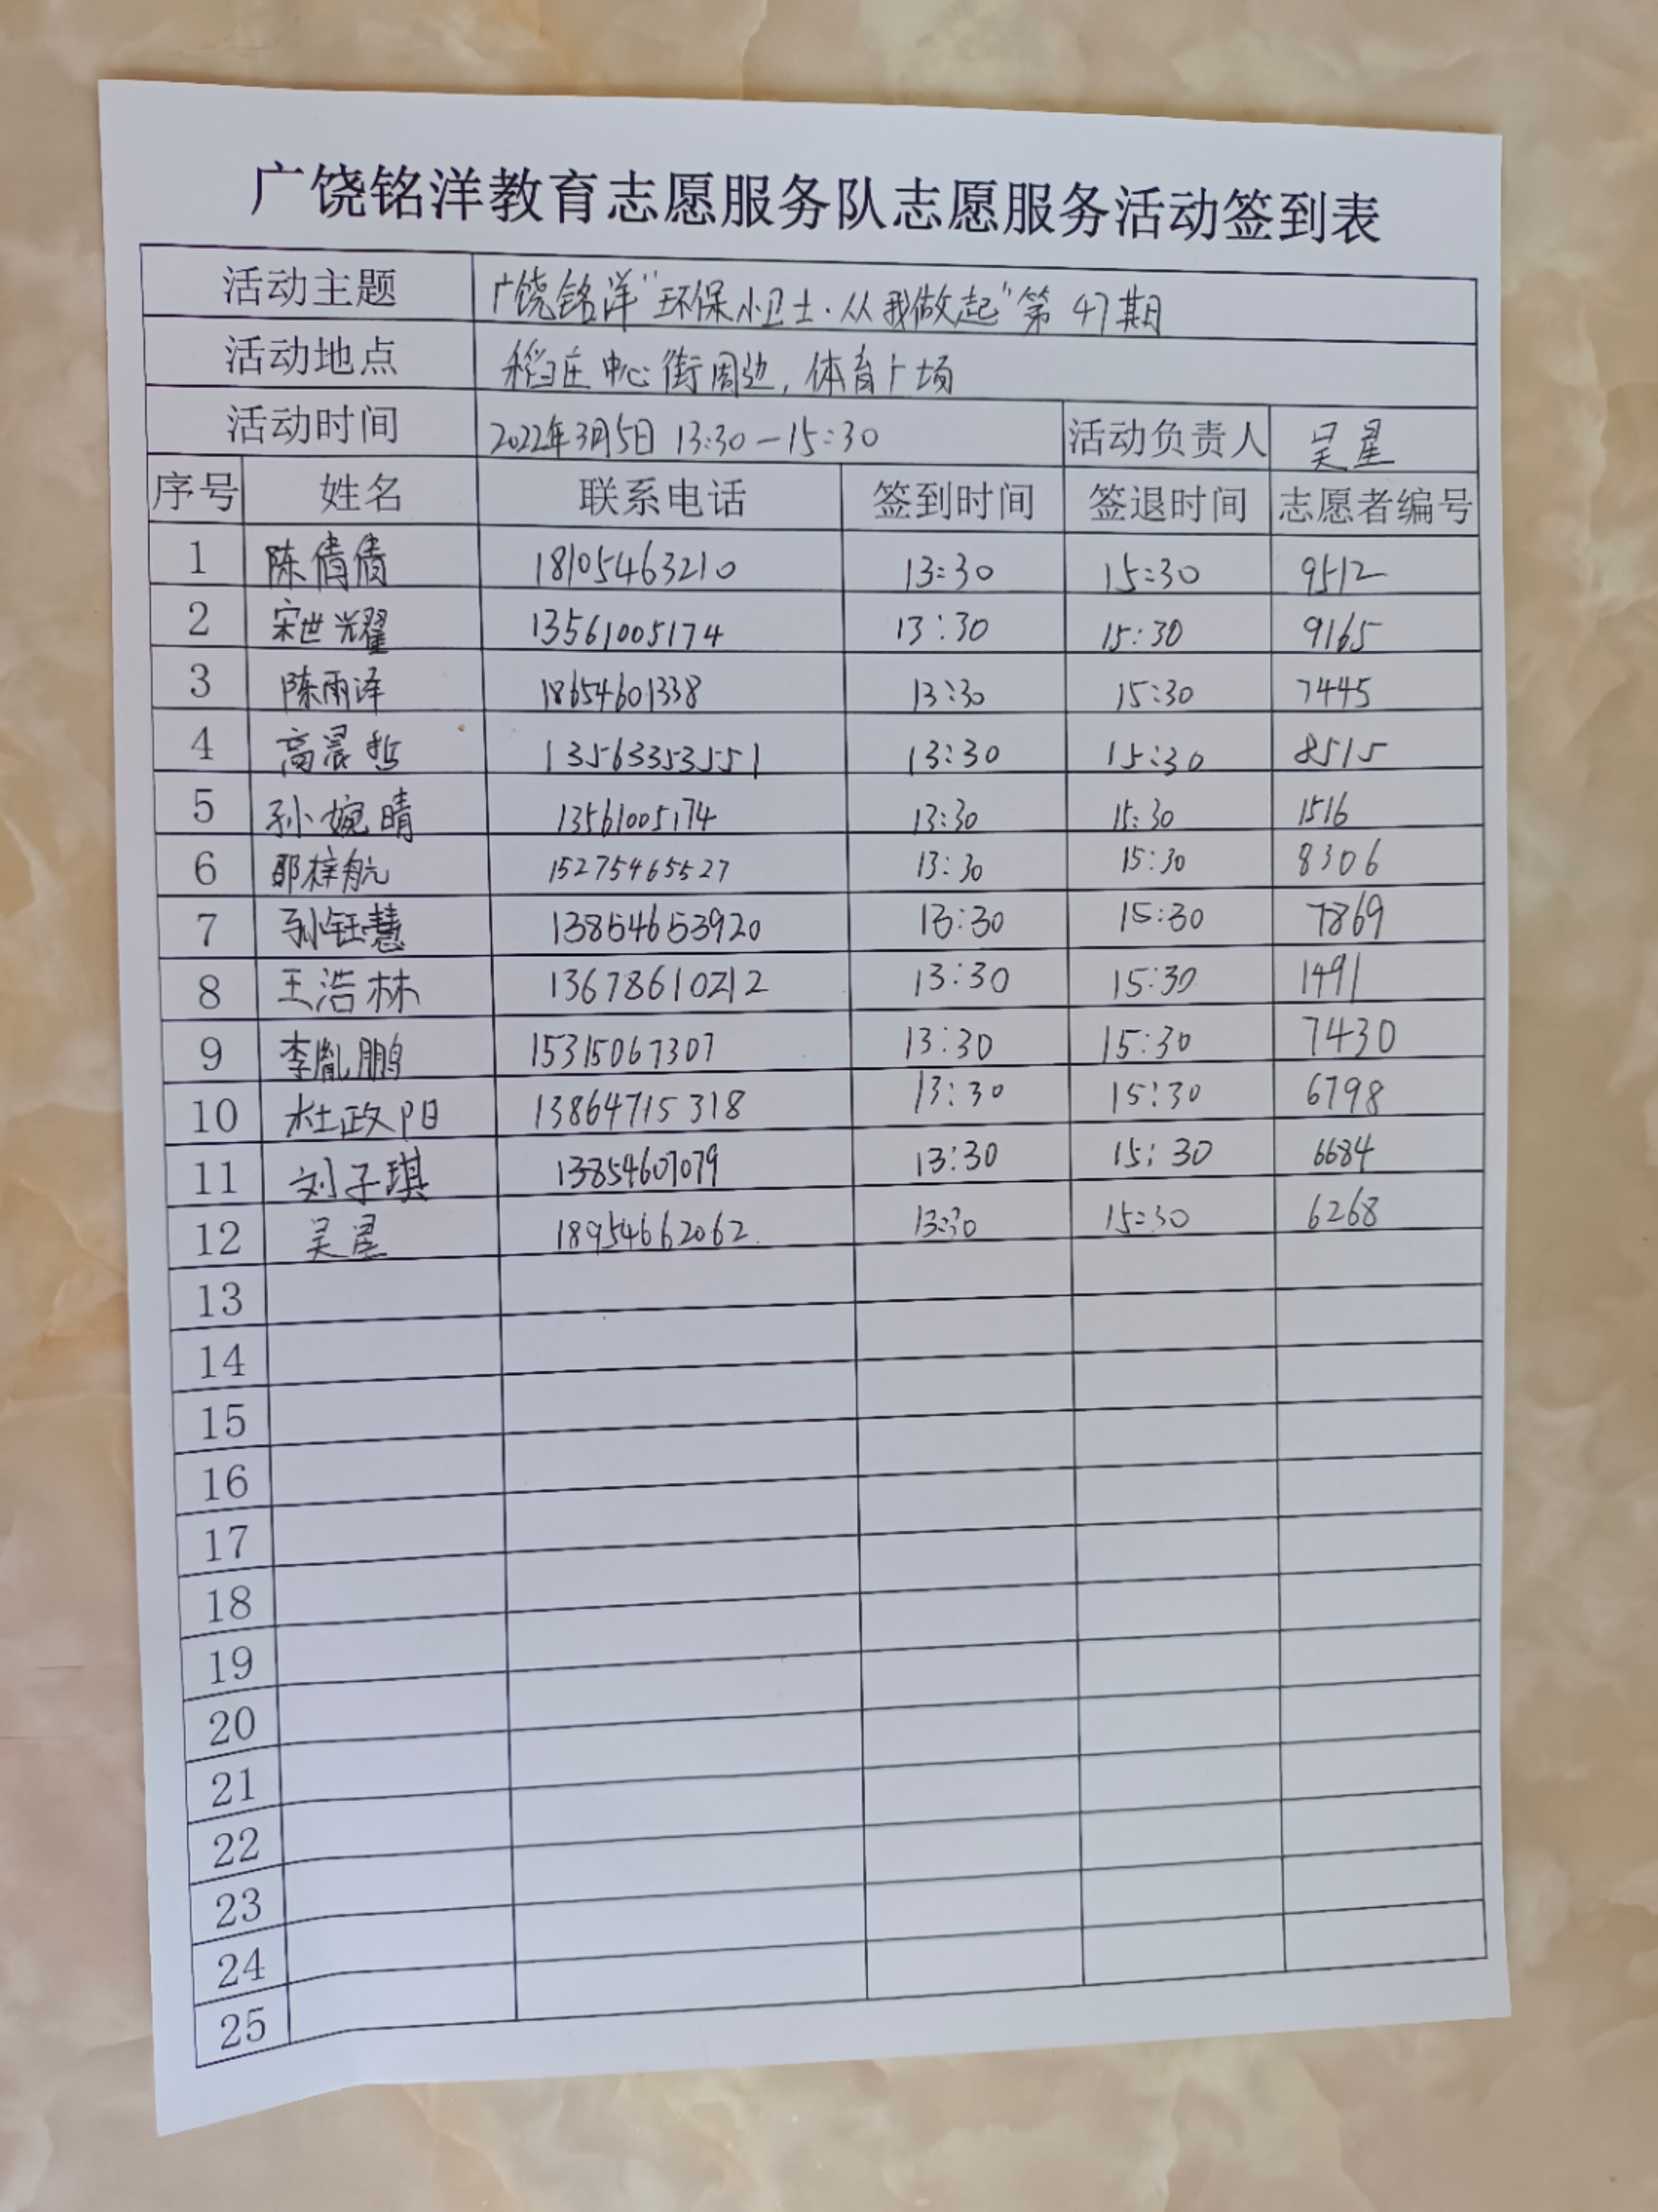 广饶铭洋教育志愿服务队志愿服务活动签到表
活动主题 广饶铭洋"环保小卫士·从我做起"第47期
活动地点 稻庄中心街周边,体育广场
活动时间 2022年3月5日 13:30-15:30 活动负责人 吴星
序号 姓名 联系电话 签到时间 签退时间 志愿者编号
1 陈倩倩 18105463210 13:30 15:30 9512
2 宋世耀 13561005174 13:30 15:30 9165
3 陈雨泽 18654601338 13:30 15:30 7445
4 高晨哲 13563353551 13:30 15:30 8515
5 孙婉晴 13561005174 13:30 15:30 1516
6 梓航 15275465527 13:30 15:30 8306
7 孙钰慧 13854653920 13:30 15:30 7869
8 王浩林 13678610212 13:30 15:30 1491
9 李胤鹏 15315067307 13:30 15:30 7430
10 杜政阳 13864715318 13:30 15:30 6798
11 刘子琪 13854607079 13:30 15:30 6684
12 吴星 18954662062 13:30 15:30 6268
13
14
15
16
17
18
19
20
21
22
23
24
25